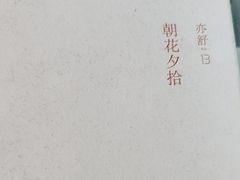 亦舒
朝花夕拾